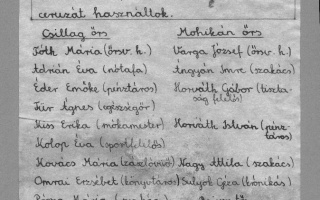 ceruzát használtok.
Csillag őrs Mohikán őrs
Tóth Mária (őrsv. h.) Varga József (őrsv. h.)
Adrián Éva (nótafa) Ángyán Imre (szakács)
Éder Emőke (pénztáros) Horváth Gábor (tiszta-
ság felelős)
Kür Ágnes (egészségőr)
Kiss Erika (mókamester) Horváth István (pénz-
táros)
Kolop Éva (sportfelelős)
Kovács Mária (zászlóvivő) Nagy Attila (szakács)
Omrai Erzsébet (könyvtáros) Sulyok Géza (krónikás)
Mária